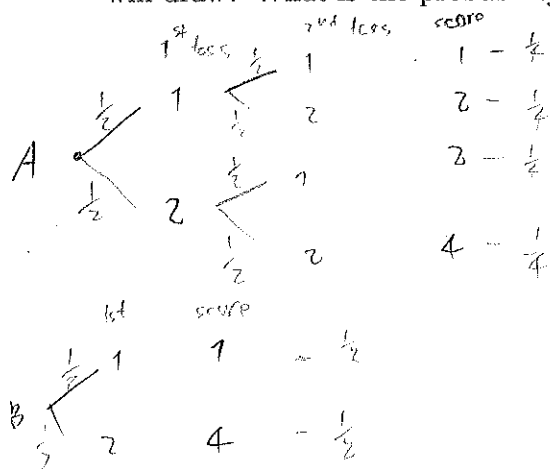 1st toss 2nd toss score
1/2 1 1/2 1 1 - 1/4
1/2 2 2 - 1/4
A
1/2 2 1/2 1 2 - 1/4
1/2 2 4 - 1/4
1st score
1/2 1 1 - 1/2
B
2 4 - 1/2